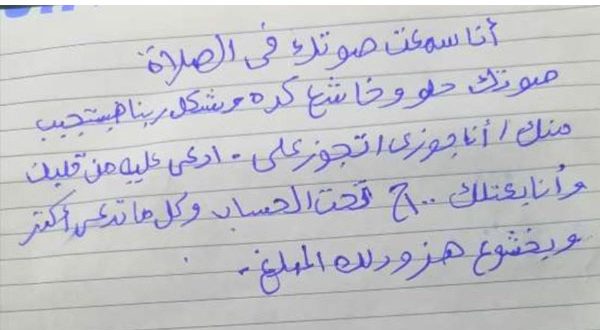 أنا سمعت صوتك في الصلاة
صوتك حلو وخاشع كده وشكل ربنا هيستجيب
منك / أنا جوزى اتجوز على - ادعى عليه من قلبك
وأنا بعتلك ..ج تحت الحساب وكل ما تدعى أكتر
وبخشوع هزودلك المبلغ -